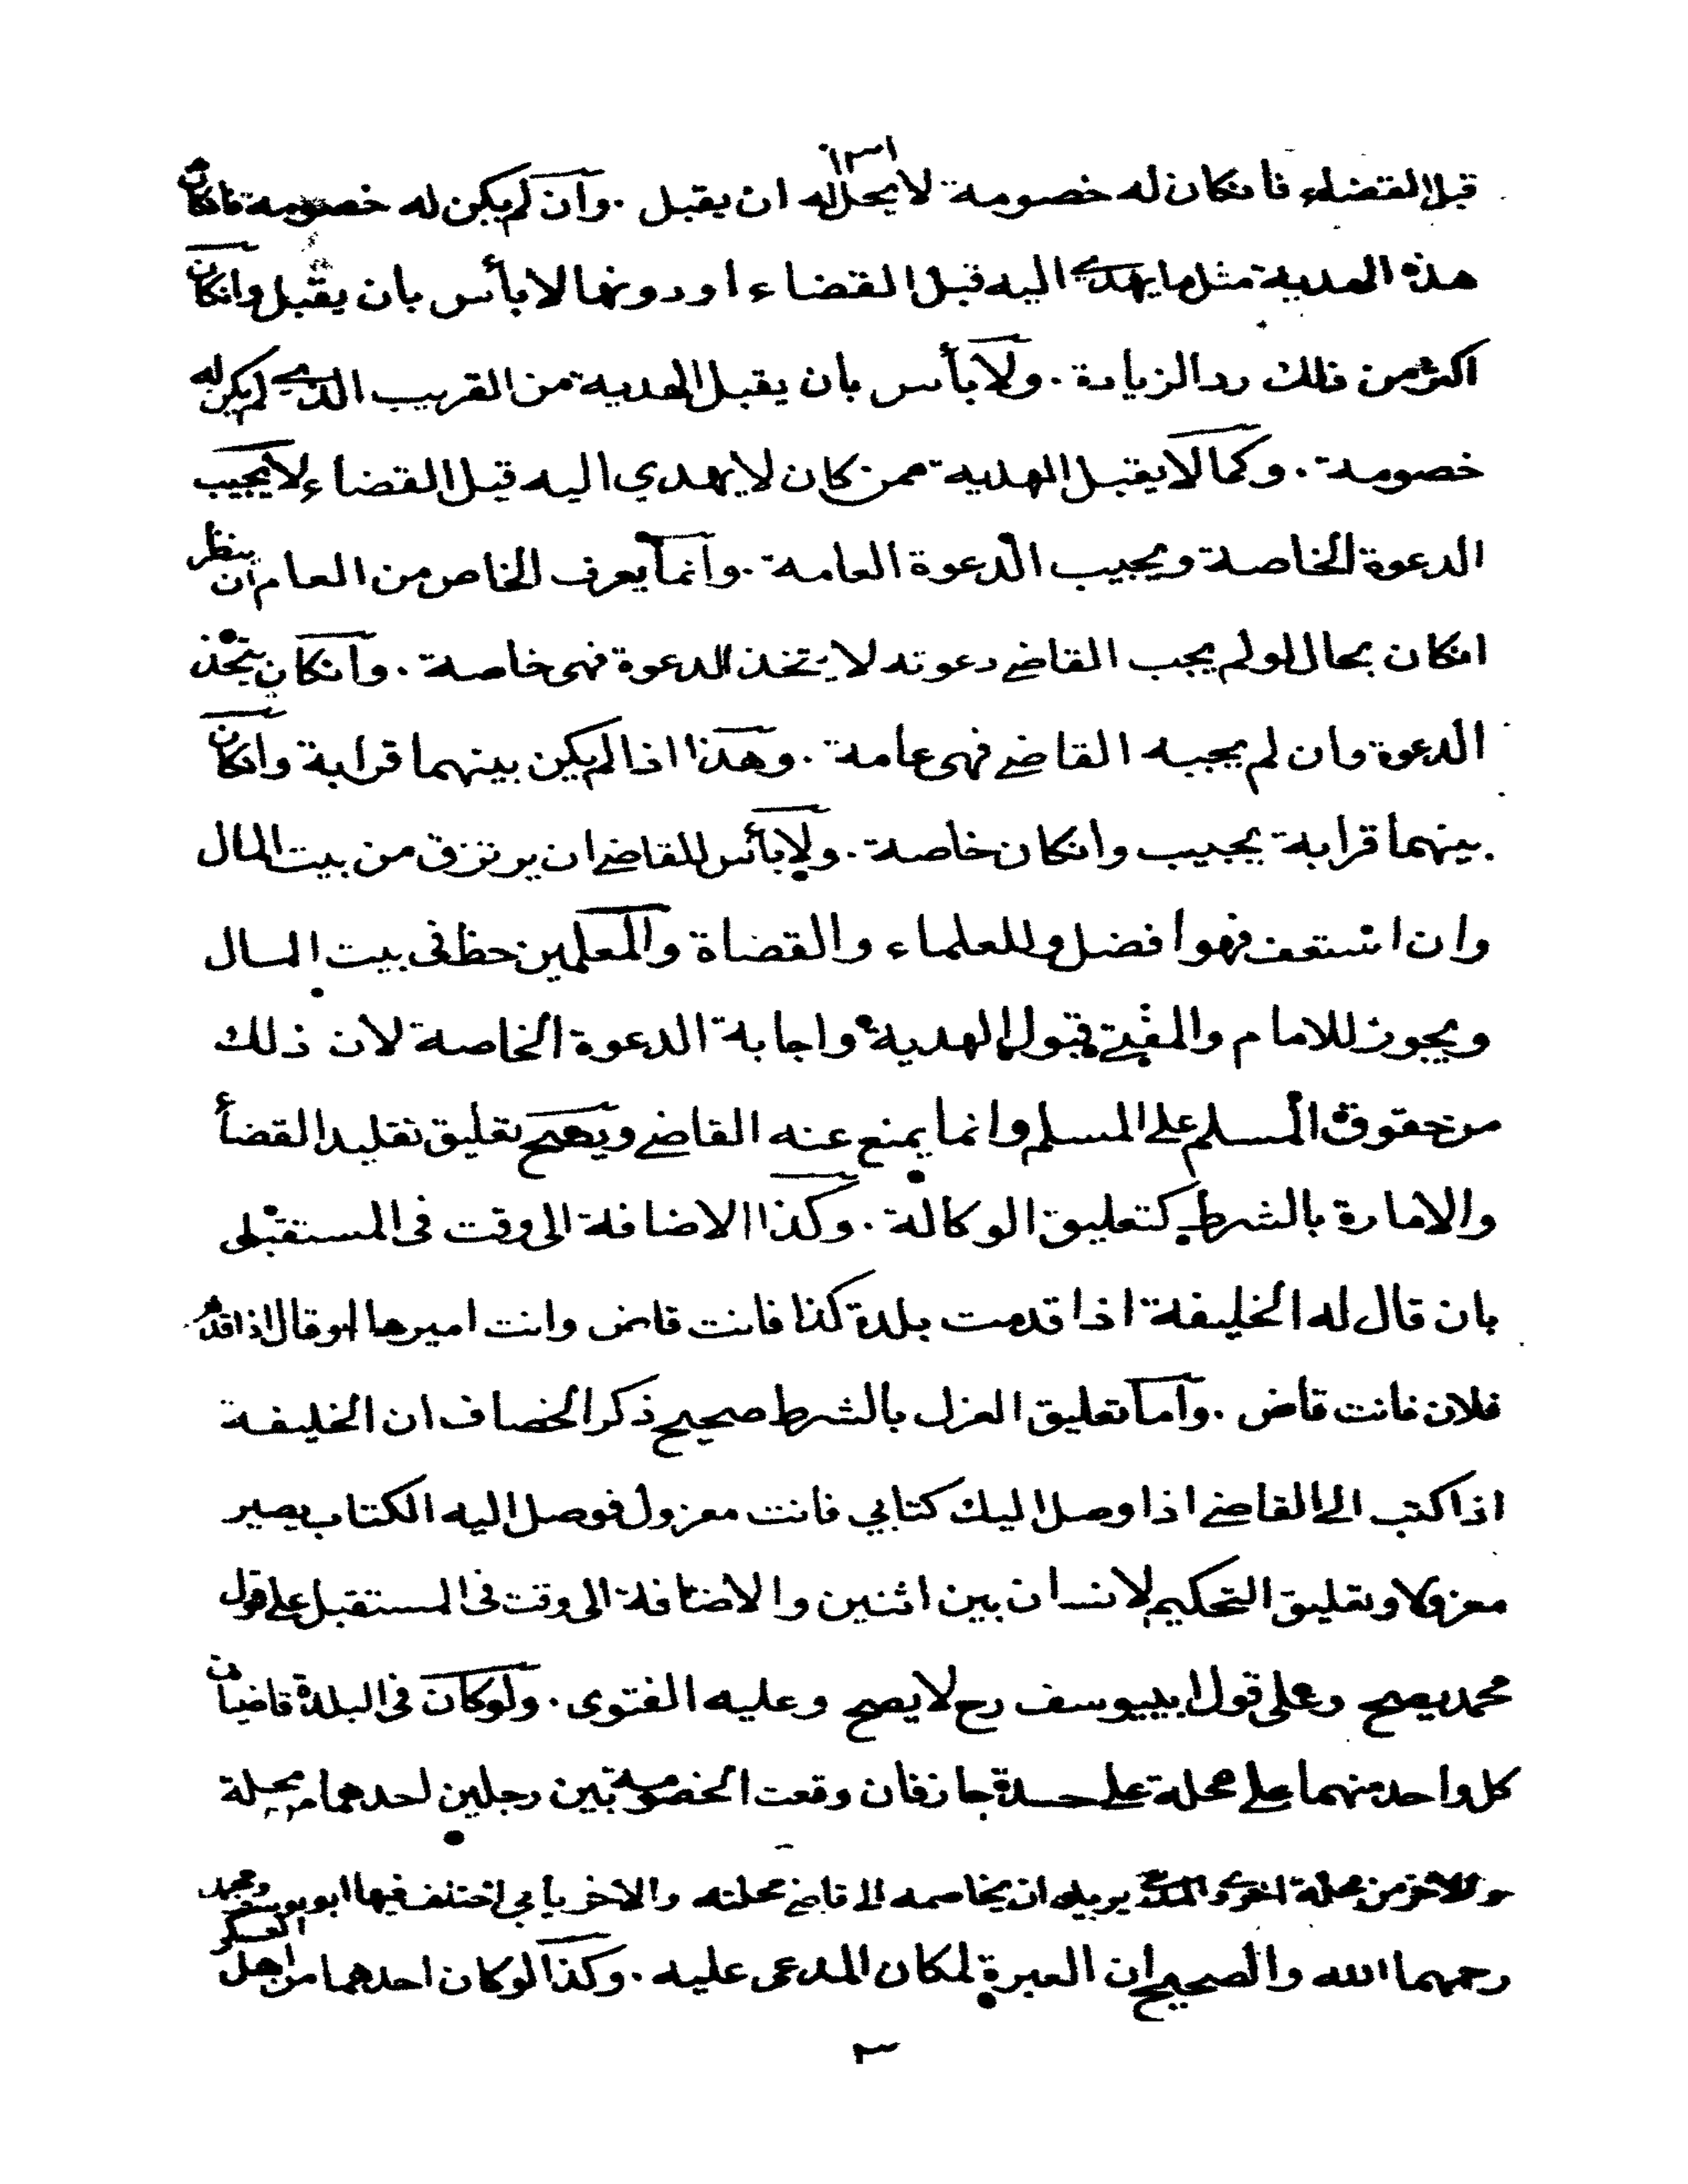 قبل القضاء فانكان له خصومة لا يحل له ان يقبل . وان لم يكن له خصومة فانكان
هذه الهدية مثل ما يهدى اليه قبل القضاء او دونها لا بأس بان يقبل وانكان
اكثر من ذلك رد الزيادة . ولا بأس بان يقبل الهدية من القريب الذي لم يكن له
خصومة . وكما لا يقبل الهدية ممن كان لا يهدي اليه قبل القضاء لا يجيب
الدعوة الخاصة ويجيب الدعوة العامة . وانما يعرف الخاص من العام ان ينظر
انكان بحال لو لم يجب القاضي دعوته لا يتخذ الدعوة فهى خاصة . وانكان يتخذ
الدعوة وان لم يجبه القاضي فهى عامة . وهذا اذا لم يكن بينهما قرابة وانكان
بينهما قرابة يجيب وانكان خاصة . ولا بأس للقاضي ان يرتزق من بيت المال
وان استعف فهو افضل وللعلماء والقضاة والمعلمين حظ فى بيت المال
ويجوز للامام والمفتي قبول الهدية واجابة الدعوة الخاصة لان ذلك
من حقوق المسلم على المسلم وانما يمنع عنه القاضي ويصح تعليق تقليد القضأ
والامارة بالشرط كتعليق الوكالة . وكذا الاضافة الى وقت فى المستقبل
بان قال له الخليفة اذا قدمت بلدة كذا فانت قاض وانت اميرها او قال اذا قدم
فلان فانت قاض . واما تعليق العزل بالشرط صحيح ذكر الخصاف ان الخليفة
اذا كتب الى القاضي اذا وصل اليك كتابي فانت معزول فوصل اليه الكتاب يصير
معزولا وتعليق التحكيم لانسان بين اثنين والاضافة الى وقت فى المستقبل على قول
محمد يصح وعلى قول ابييوسف رح لا يصح وعليه الفتوى . ولو كان فى البلدة قاضيان
كل واحد منهما على محلة على حدة جاز فان وقعت الخصومة بين رجلين احدهما من محلة
والاخر من محلة اخرى والمدعي يريد ان يخاصمه الى قاضي محلته والاخر يأبى اختلف فيها ابو يوسف ومحمد
رحمهما الله والصحيح ان العبرة لمكان المدعى عليه . وكذا لو كان احدهما من اهل العسكر